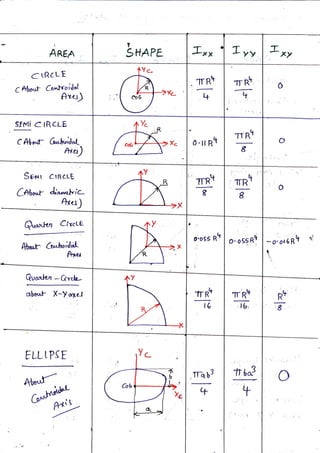 AREA SHAPE Ixx Iyy Ixy
CIRCLE
(About Centroidal
Axes)
Yc
R
CoG
Xc
πR⁴/4 πR⁴/4 0
SEMI CIRCLE
(About Centroidal
Axes)
Yc
R
CoG
Xc
0.11R⁴ πR⁴/8 0
SEMI CIRCLE
(About diametric
Axes)
Y
R
X
πR⁴/8 πR⁴/8 0
Quarter Circle
About Centroidal
Axes
Y
X
R
0.055R⁴ 0.055R⁴ -0.016R⁴
Quarter-Circle
about X-Y axes
Y
R
X
πR⁴/16 πR⁴/16 R⁴/8
ELLIPSE
About
Centroidal
Axis
Yc
b
CoG
Xc
a
πab³/4 πba³/4 0